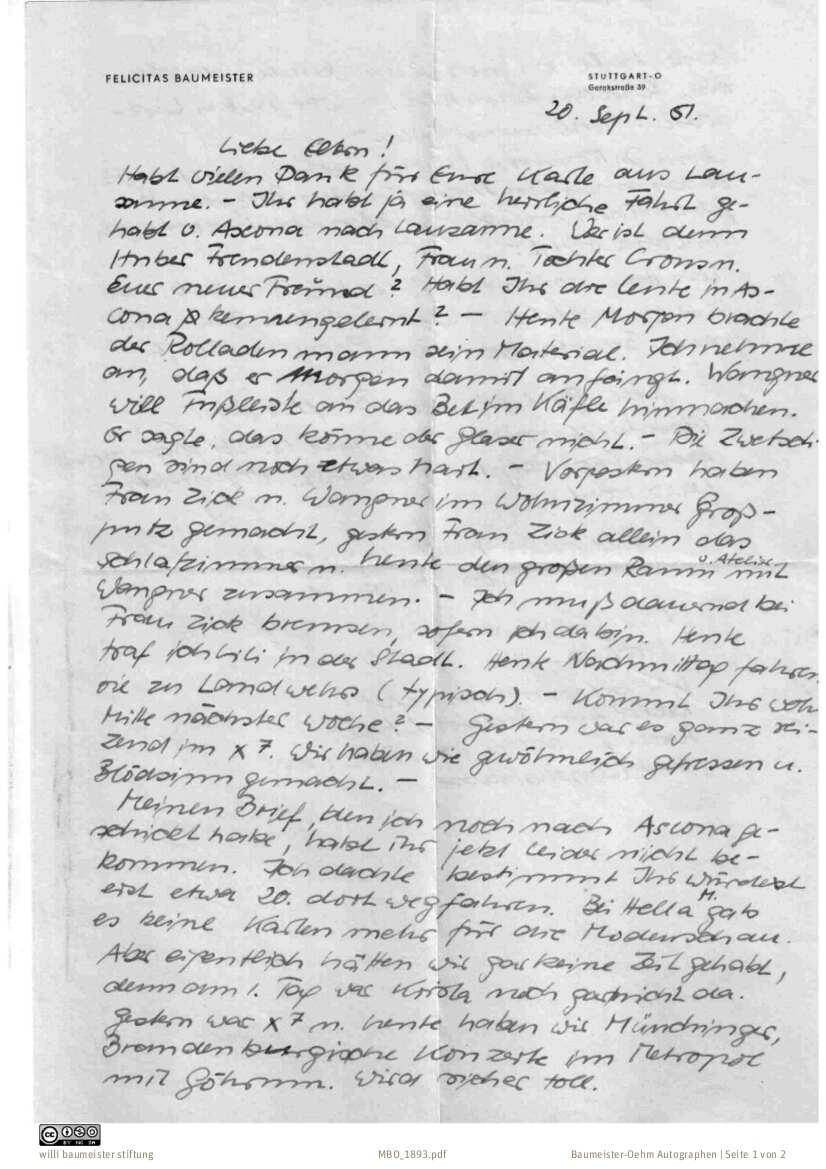 FELICITAS BAUMEISTER
STUTTGART-O
Gerokstraße 39
20. Sept. 51.
Liebe Eltern!
Habt vielen Dank für Eure Karte aus Lau-
sanne. - Ihr habt ja eine herrliche Fahrt ge-
habt v. Ascona nach Lausanne. Wer ist denn
Huber Freudenstadt, Frau u. Tochter
Euer neuer Freund? Habt Ihr die Leute in As-
cona kennengelernt? - Heute Morgen brachte
der Rolladenmann sein Material. Ich nehme
an, daß er Morgen damit anfängt. Wangner
will Fußleiste an das Bett im Käfle hinmachen.
Er sagte, das könne der Glaser nicht. - Die Zwetsch-
gen sind noch etwas hart. - Vorgestern haben
Frau Zick u. Wangner im Wohnzimmer Groß-
putz gemacht, gestern Frau Zick allein das
Schlafzimmer u. heute den großen Raum u. Atelier mit
Wangner zusammen. - Ich muß dauernd bei
Frau Zick bremsen, sofern ich da bin. Heute
traf ich Lili in der Stadt. Heute Nachmittag fahren
sie zu Landwehrs (typisch). - Kommt Ihr wohl
Mitte nächster Woche? - Gestern war es ganz rei-
zend im x 7. Wir haben wie gewöhnlich gefressen u.
Blödsinn gemacht. -
Meinen Brief, den ich noch nach Ascona ge-
schickt habe, habt ihr jetzt leider nicht be-
kommen. Ich dachte bestimmt Ihr würdest
erst etwa 20. dort wegfahren. Bei Hella M. gab
es keine Karten mehr für die Modenschau.
Aber eigentlich hätten wir gar keine Zeit gehabt,
denn am 1. Tag war Krista noch gar nicht da.
Gestern war x 7 u. heute haben wir Münchinger,
Brandenburgische Konzerte im Metropol
mit Göhrum. Wird sicher toll.
willi baumeister stiftung
MBO_1893.pdf
Baumeister-Oehm Autographen | Seite 1 von 2